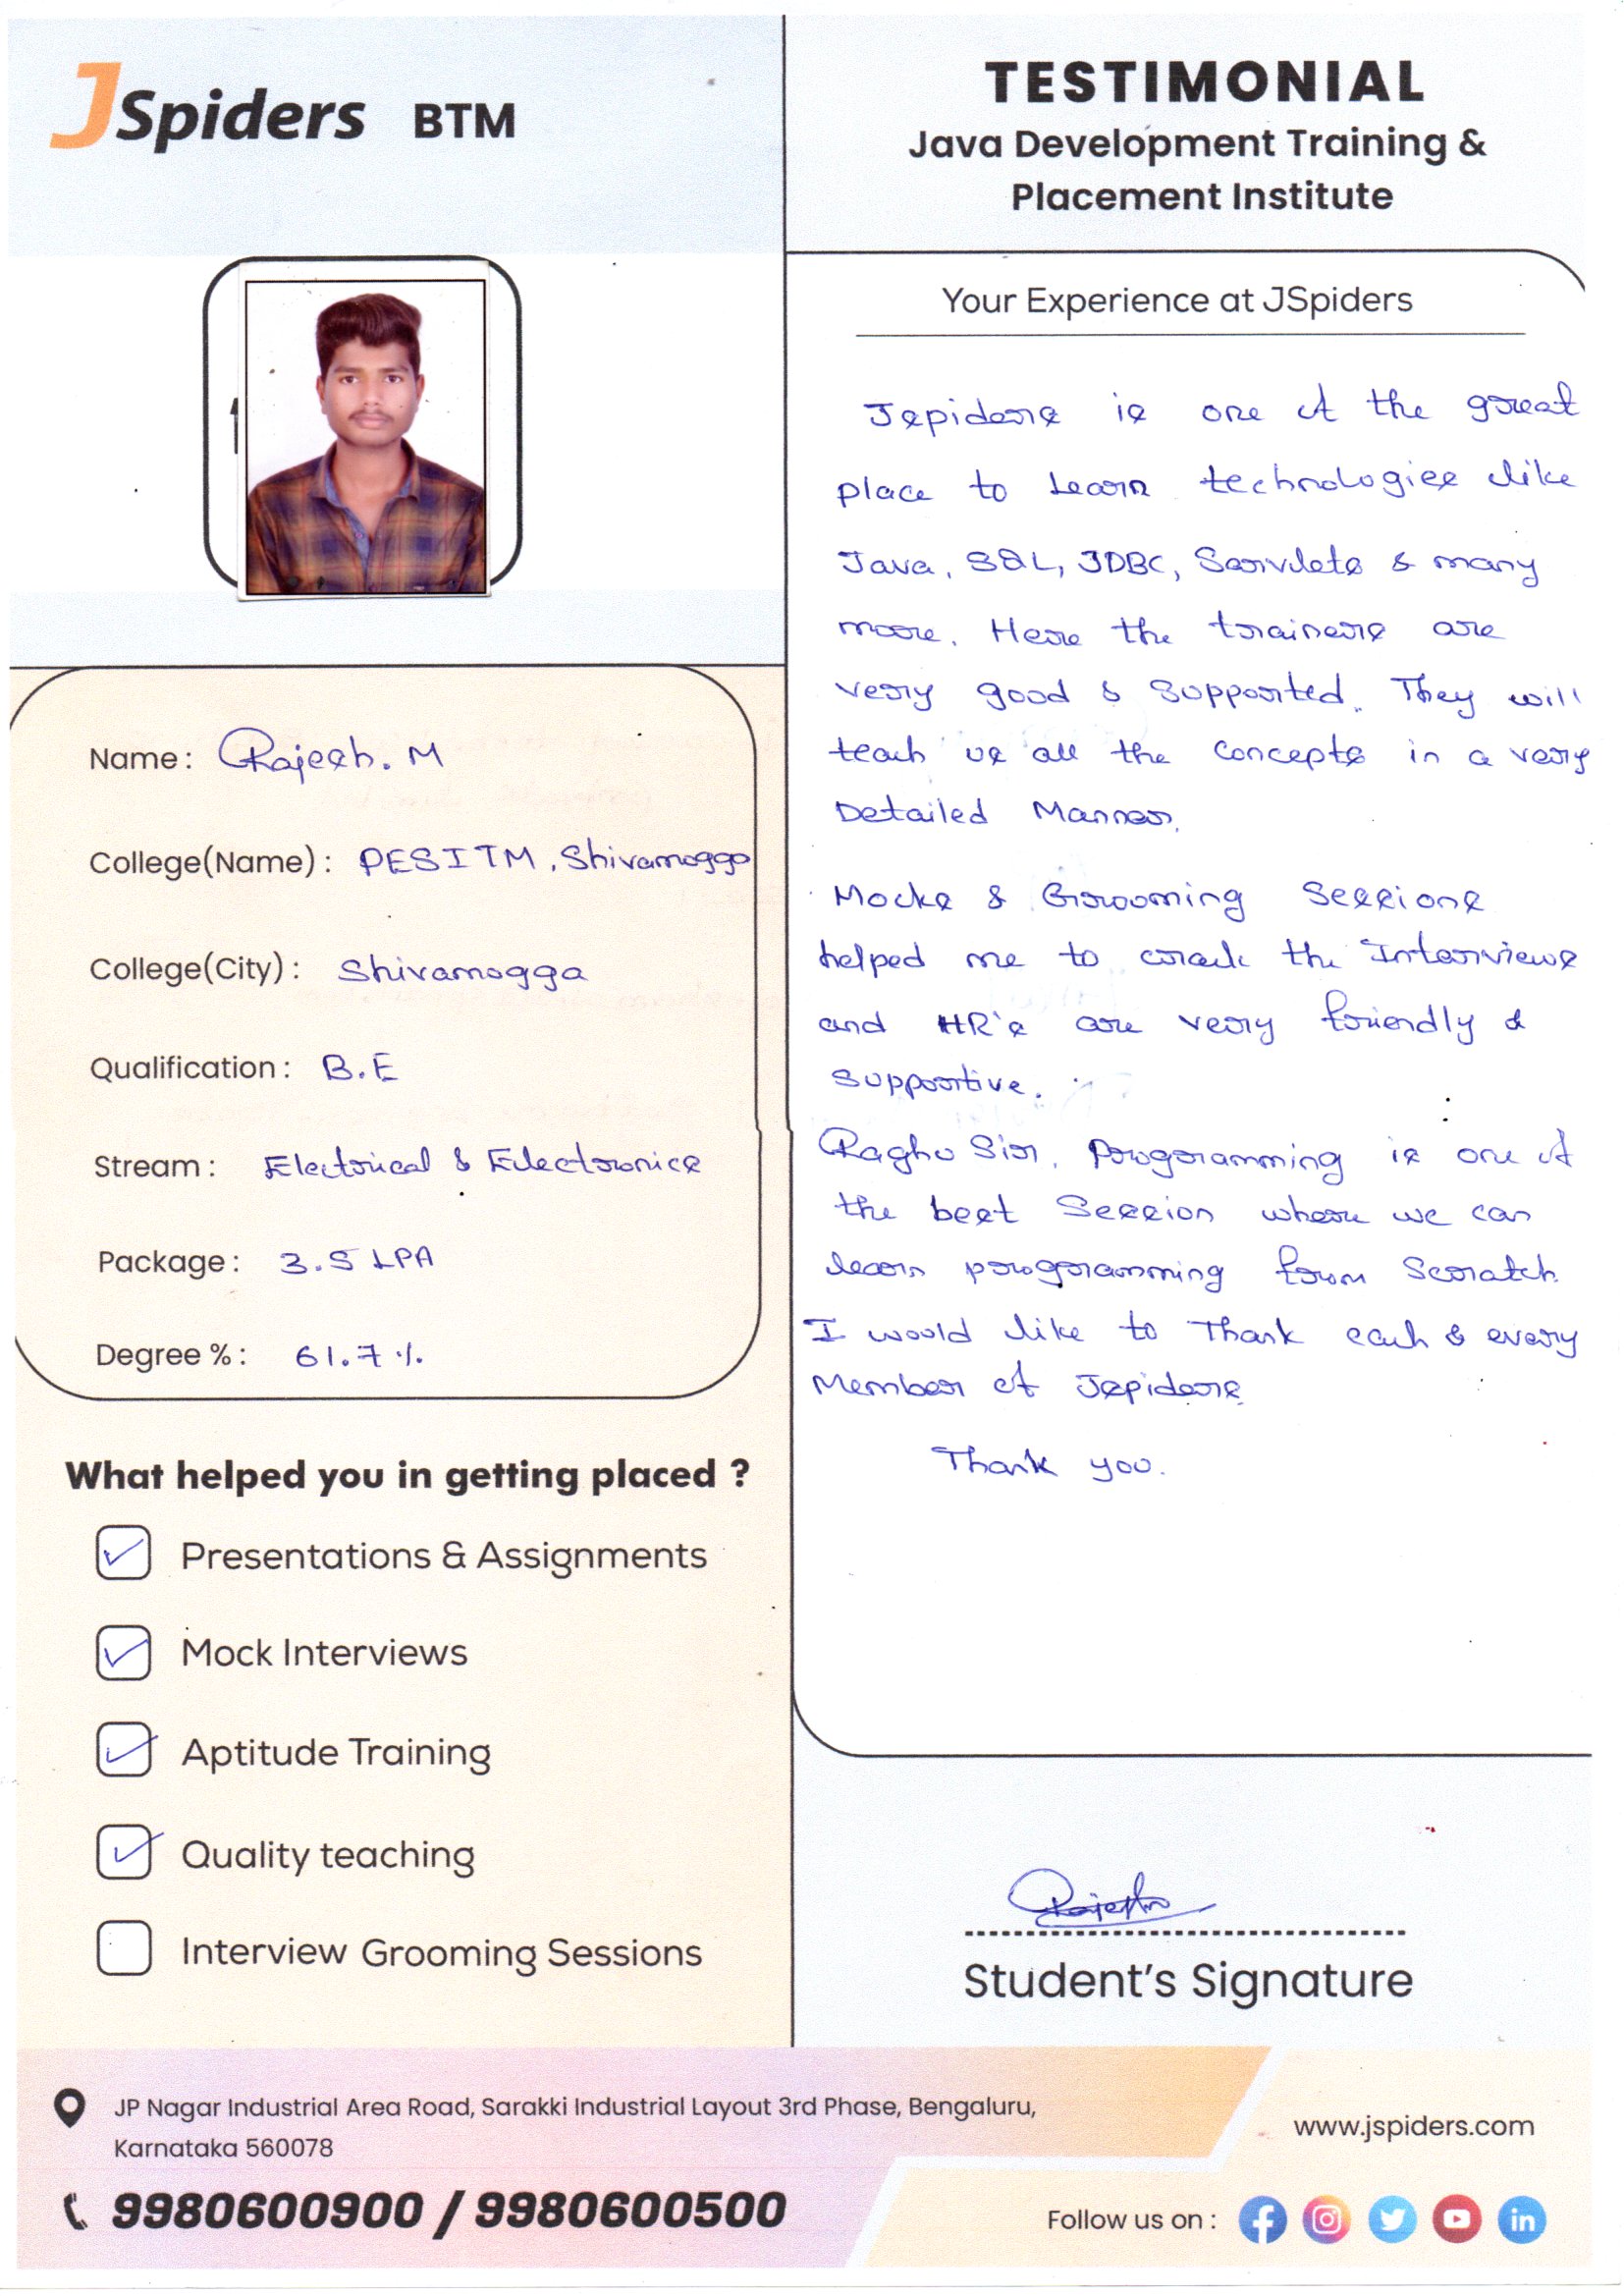 JSpiders BTM
Name : Rajesh. M
College(Name) : PESITM, Shivamogga
College(City) : Shivamogga
Qualification : B.E
Stream : Electrical & Electronics
Package : 3.5 LPA
Degree % : 61.7 %
What helped you in getting placed ?
Presentations & Assignments
Mock Interviews
Aptitude Training
Quality teaching
Interview Grooming Sessions
TESTIMONIAL
Java Development Training &
Placement Institute
Your Experience at JSpiders
Jspiders is one of the great
place to Learn technologies like
Java, SQL, JDBC, Servlets & many
more. Here the trainers are
very good & Supported. They will
teach us all the Concepts in a very
Detailed Manner.
Mocks & Grooming Sessions
helped me to crack the Interviews
and HR's are very friendly &
Supportive.
Raghu Sir, Programming is one of
the best Session where we can
learn programming from Scratch
I would like to Thank each & every
Member of Jspiders
Thank you.
Rajesh
Student's Signature
JP Nagar Industrial Area Road, Sarakki Industrial Layout 3rd Phase, Bengaluru,
Karnataka 560078
9980600900 / 9980600500
www.jspiders.com
Follow us on :